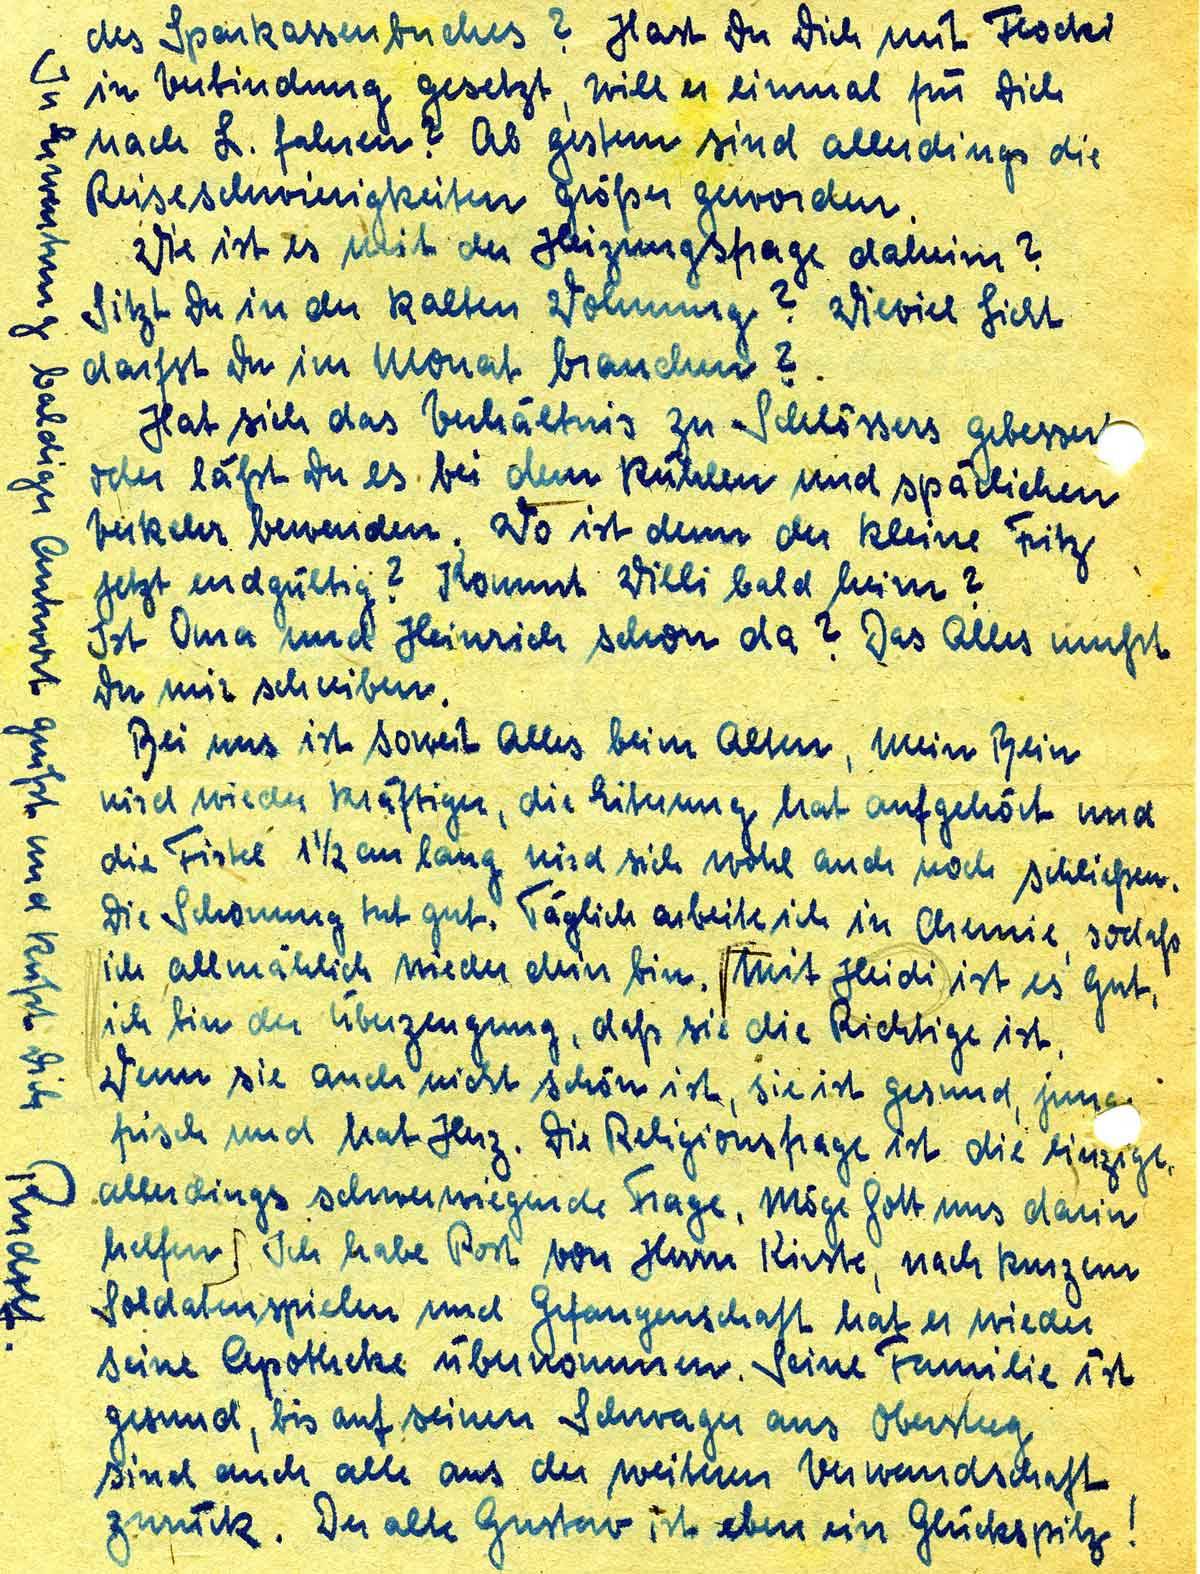 des Sparkassenbuches? Hast Du Dich mit Flocki
in Verbindung gesetzt, will er einmal für Dich
nach L. fahren? Ab gestern sind allerdings die
Reiseschwierigkeiten größer geworden.
Wie ist es mit der Heizungsfrage daheim?
Sitzt Du in der kalten Wohnung? Wieviel Licht
darfst Du im Monat brauchen?
Hat sich das Verhältnis zu Schlössers gebessert
oder läßt Du es bei dem kühlen und spärlichen
Verkehr bewenden. Wo ist denn der kleine Fritz
jetzt endgültig? Kommt Willi bald heim?
Ist Oma und Heinrich schon da? Das Alles mußt
Du mir schreiben.
Bei uns ist soweit Alles beim Alten, mein Bein
wird wieder kräftiger, die Eiterung hat aufgehört und
die Fistel 1 1/2 cm lang wird sich wohl auch noch schließen.
Die Schonung tut gut. Täglich arbeite ich in Chemie, sodaß
ich allmählich wieder drin bin. Mit Heidi ist es gut,
ich bin der Überzeugung, daß sie die Richtige ist,
Wenn sie auch nicht schön ist, sie ist gesund, jung,
frisch und hat Herz. Die Religionsfrage ist die einzige,
allerdings schwerwiegende Frage. Möge Gott uns darin
helfen. Ich habe Post von Herrn Kirste, nach kurzem
Soldatenspielen und Gefangenschaft hat er wieder
seine Apotheke übernommen. Seine Familie ist
gesund, bis auf seinen Schwager aus
sind auch alle aus der weiteren Verwandschaft
zurück. Der alte Gustav ist eben ein Glückspilz!
In Erwartung baldiger Antwort grüßt und küßt Dich Rudolf.